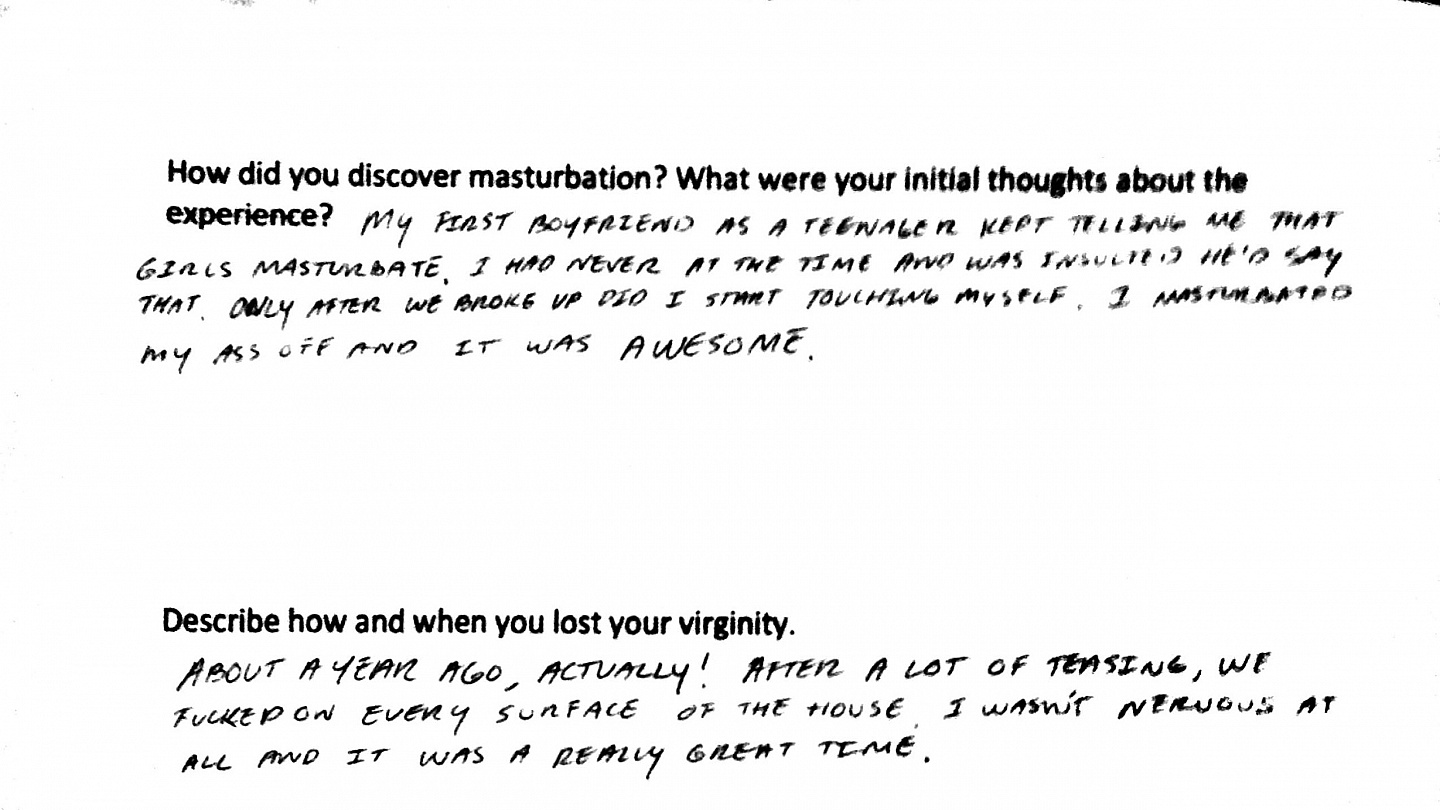 How did you discover masturbation? What were your initial thoughts about the
experience? MY FIRST BOYFRIEND AS A TEENAGER KEPT TELLING ME THAT
GIRLS MASTURBATE. I HAD NEVER AT THE TIME AND WAS INSULTED HE'D SAY
THAT. ONLY AFTER WE BROKE UP DID I START TOUCHING MYSELF. I MASTURBATED
MY ASS OFF AND IT WAS AWESOME.
Describe how and when you lost your virginity.
ABOUT A YEAR AGO, ACTUALLY! AFTER A LOT OF TEASING, WE
FUCKED ON EVERY SURFACE OF THE HOUSE. I WASN'T NERVOUS AT
ALL AND IT WAS A REALLY GREAT TIME.